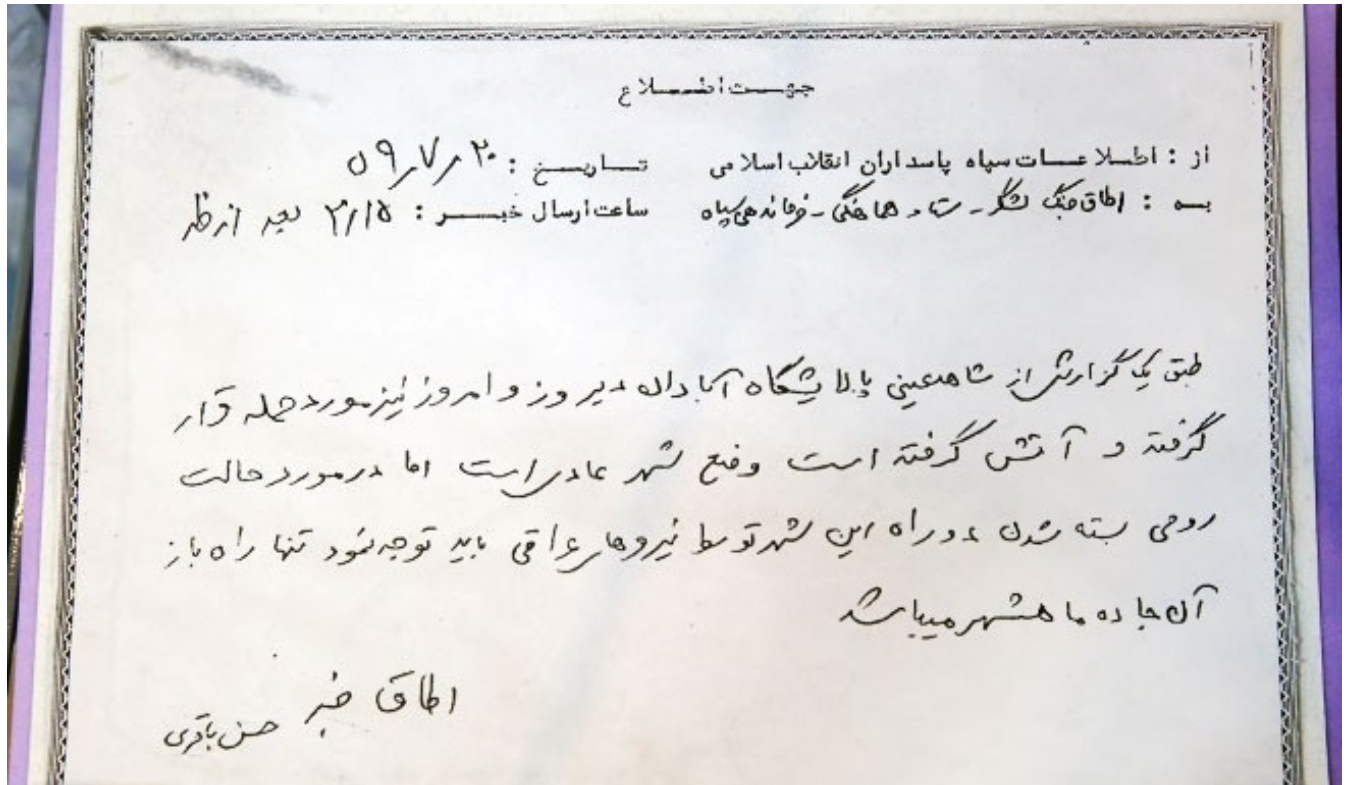 جهت اطلاع
از : اطلاعات سپاه پاسداران انقلاب اسلامی تاریخ : ۲۰ر۷ر۵۹
به : اطاق جنگ لشگر - ستاد هماهنگی - فرماندهی سپاه ساعت ارسال خبر : ۳/۱۵ بعد از ظهر
طبق یک گزارش از شاهد عینی پالایشگاه آبادان دیروز و امروز نیز مورد حمله قرار
گرفته و آتش گرفته است وضع شهر عادی است اما در مورد حالت
روحی بسته شدن دو راه این شهر توسط نیروهای عراقی باید توجه نمود تنها راه باز
آن جاده ماهشهر میباشد
اطاق خبر حسن باقری